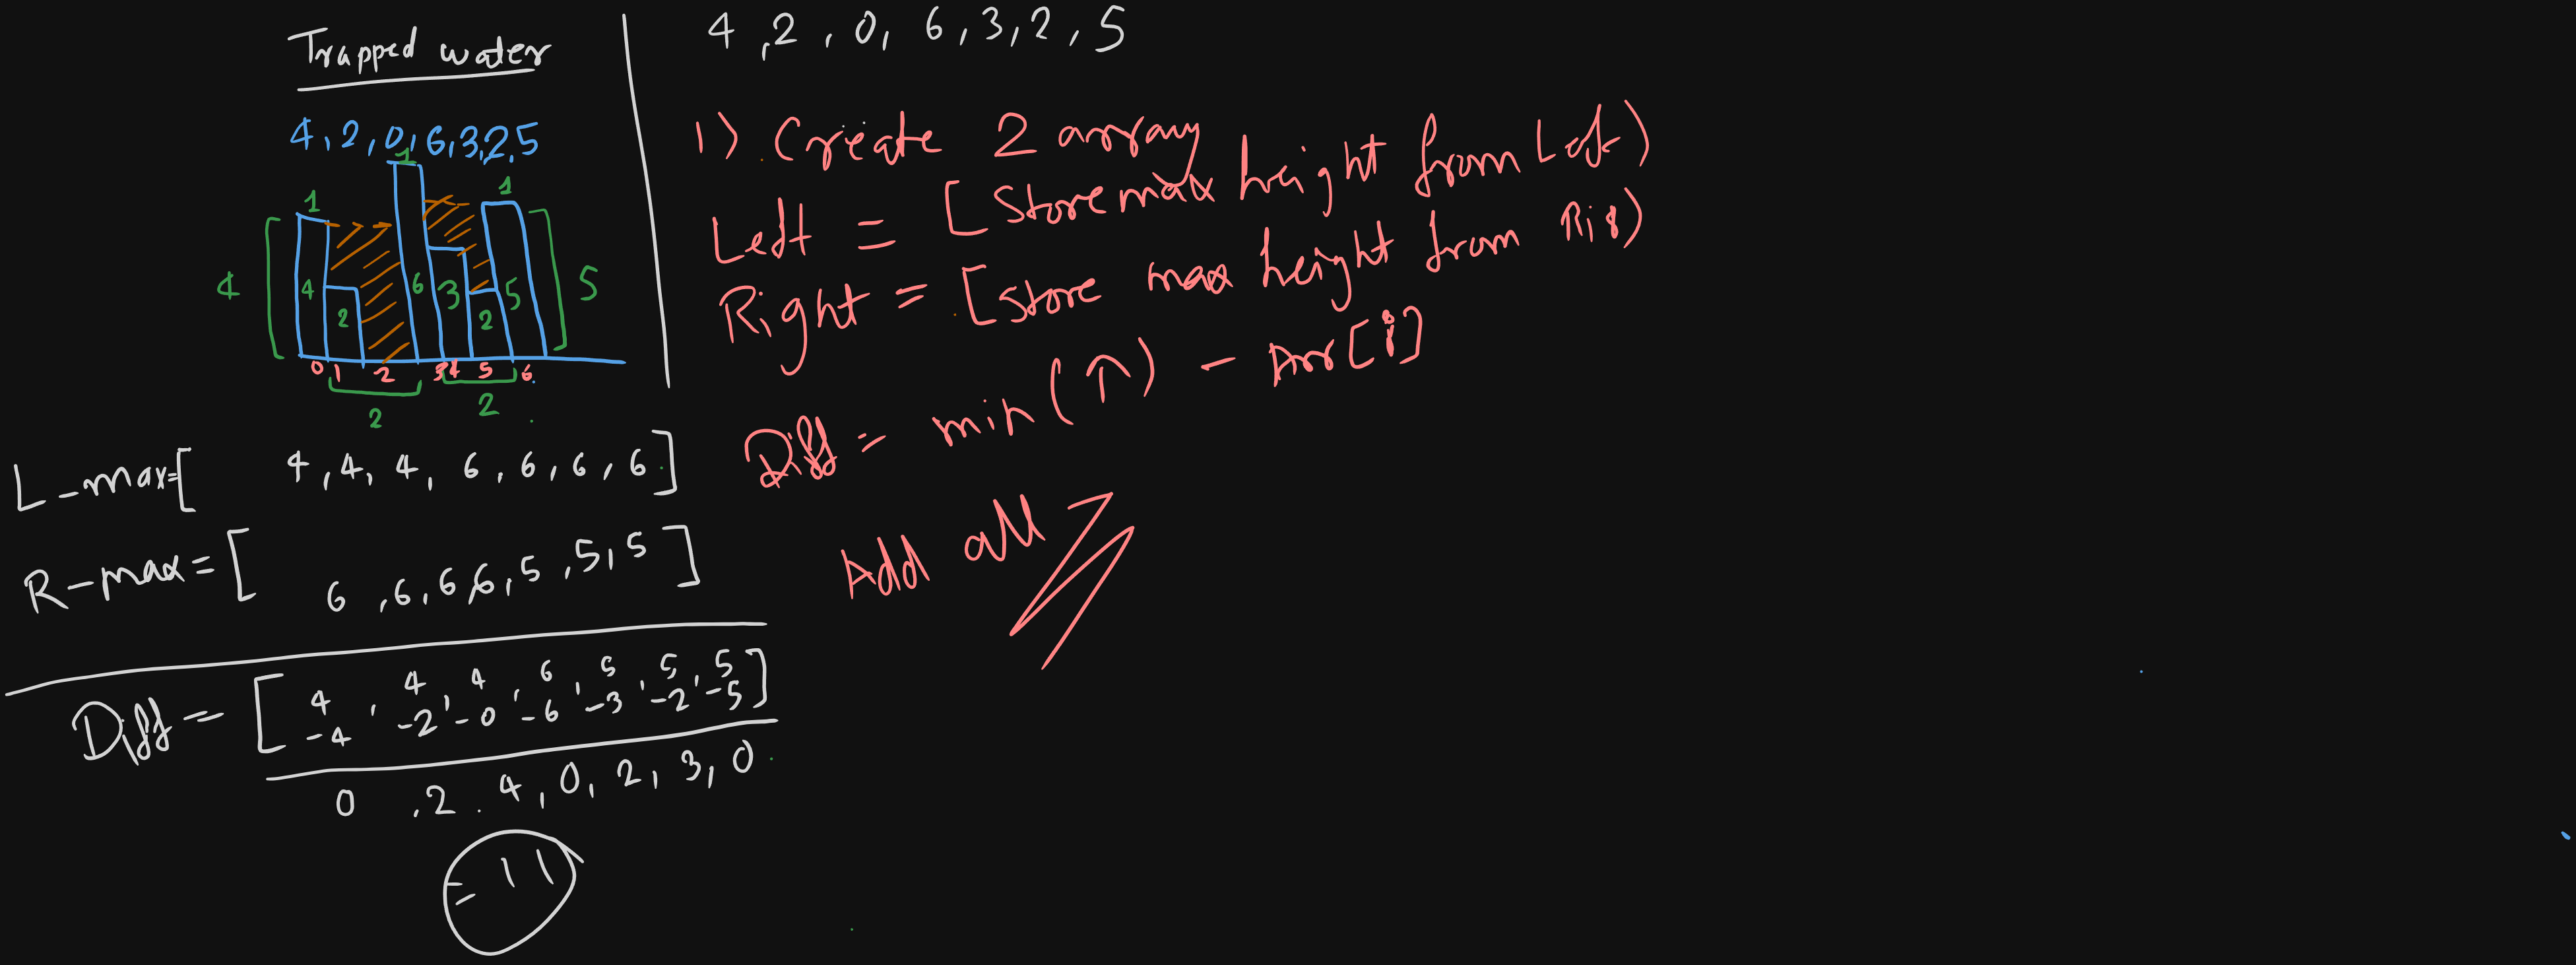 Trapped water
4, 2, 0, 6, 3, 2, 5
1 1 1
4 4 2 6 3 2 5 5
0 1 2 3 4 5 6
2 2
L-max=[ 4, 4, 4, 6, 6, 6, 6]
R-max=[ 6, 6, 6, 6, 5, 5, 5]
Diff = [ 4, 4, 4, 6, 5, 5, 5]
-4 -2 -0 -6 -3 -2 -5
0, 2, 4, 0, 2, 3, 0
= 11
4, 2, 0, 6, 3, 2, 5
1) Create 2 array
Left = [store max height from Left)
Right = [store max height from Rig)
Diff = min(↑) - Arr[i]
Add all